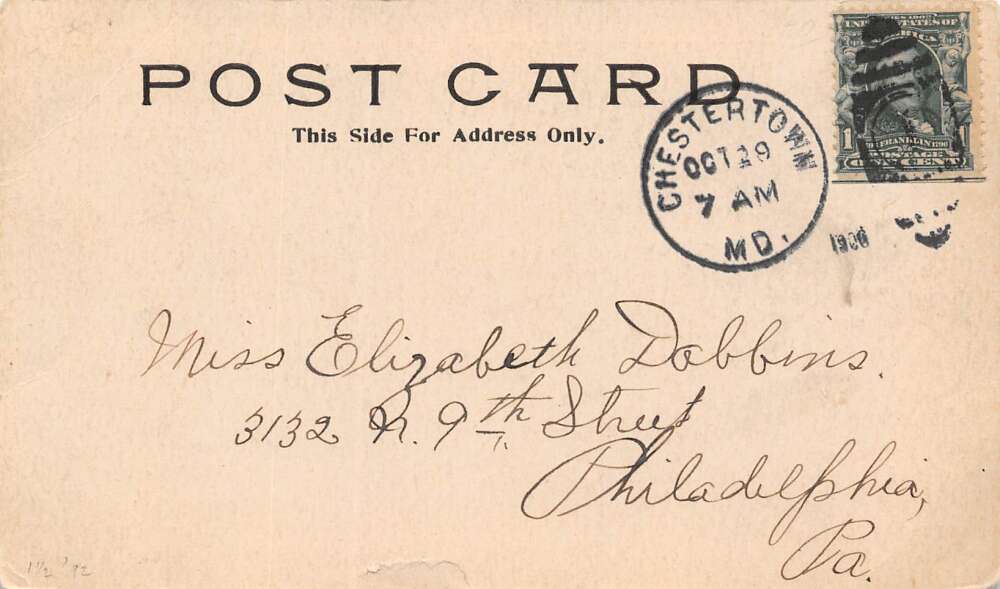 POST CARD
This Side For Address Only.
UNITED STATES OF
AMERICA
1
FRANKLIN 1790
POSTAGE
ONE CENT
CHESTERTOWN
OCT 29
7 AM
MD.
1906
Miss Elizabeth Dobbins.
3132 N. 9th Street
Philadelphia,
Pa.
1½ '92